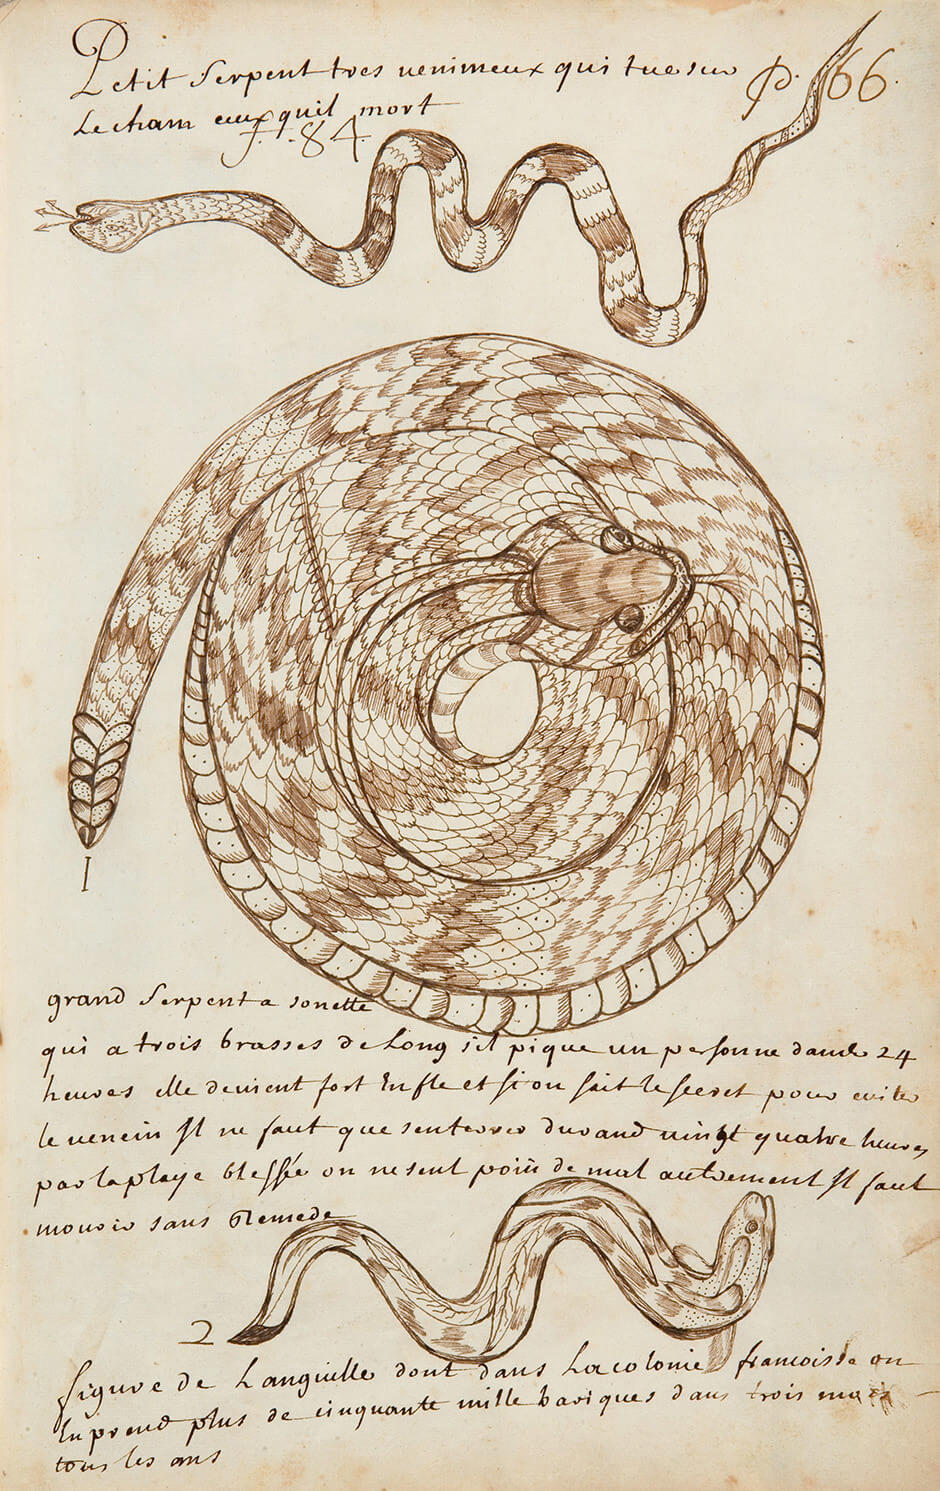 Petit serpent tres venimeux qui tue sur p. 66.
Le cham ceux quil mort
f. .84.
1
grand serpent a sonette
qui a trois brasses de Long sil pique un personne dans 24
heures elle devient fort Enfle et si on sait le secret pour eviter
le venein Il ne faut que senterrer durand vingt quatre heures
par la playe blessée on ne sent poin de mal autrement Il faut
mourir sans Remede
2
figure de Languille dont dans La colonie francoisse on
En prend plus de cinquante mille bariques dans trois mois
tous les ans